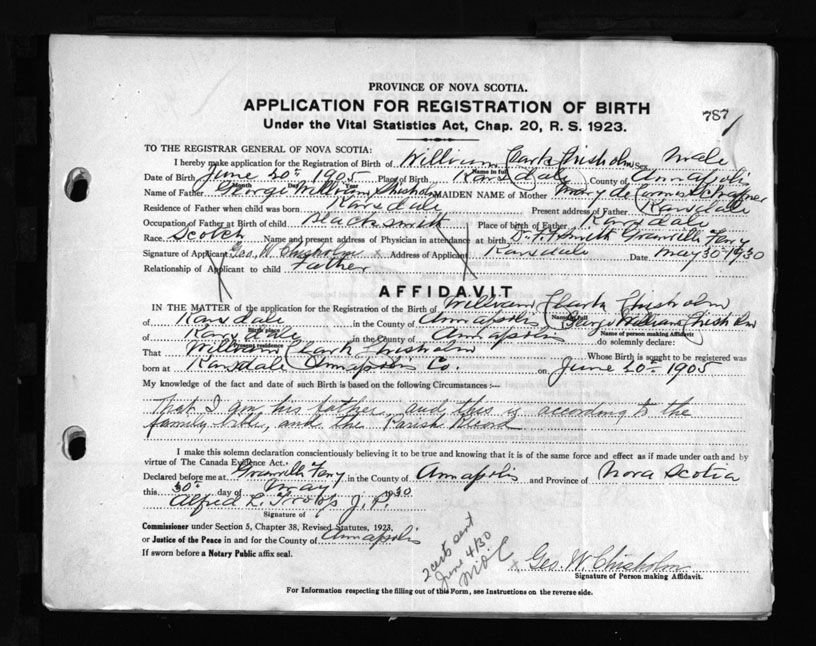 PROVINCE OF NOVA SCOTIA.
APPLICATION FOR REGISTRATION OF BIRTH
787
Under the Vital Statistics Act, Chap. 20, R. S. 1923.
TO THE REGISTRAR GENERAL OF NOVA SCOTIA:
I hereby make application for the Registration of Birth of William Clark Chisholm Sex Male
Name in full
Date of Birth June 20th 1905 Place of Birth Karsdale County of Annapolis
Month Day Year
Name of Father George William Chisholm MAIDEN NAME of Mother Mary de
Residence of Father when child was born Karsdale Present address of Father Karsdale
Occupation of Father at Birth of child Blacksmith Place of birth of Father Karsdale
Race Scotch Name and present address of Physician in attendance at birth Smith Granville Ferry
Signature of Applicant Geo. W Chisholm x Address of Applicant Karsdale Date May 30 - 1930
Relationship of Applicant to child Father
AFFIDAVIT
IN THE MATTER of the application for the Registration of the Birth of William Clark Chisholm
Name in full
of Karsdale in the County of Annapolis George William Chisholm
Birth place Name of person making Affidavit
of Karsdale in the County of Annapolis do solemnly declare:
Present residence
That William Clark Chisholm Whose Birth is sought to be registered was
born at Karsdale Annapolis Co. on June 20th 1905
My knowledge of the fact and date of such Birth is based on the following Circumstances :—
That I am his father, and this is according to the
family bible, and the Parish Record
I make this solemn declaration conscientiously believing it to be true and knowing that it is of the same force and effect as if made under oath and by
virtue of The Canada Evidence Act.
Declared before me at Granville Ferry in the County of Annapolis and Province of Nova Scotia
this 30th day of May 1930
Alfred L. J. P.
Signature of
Commissioner under Section 5, Chapter 38, Revised Statutes, 1923,
or Justice of the Peace in and for the County of Annapolis
If sworn before a Notary Public affix seal.
2 certs sent
June 4/30
x Geo. W. Chisholm
Signature of Person making Affidavit.
For Information respecting the filling out of this Form, see Instructions on the reverse side.